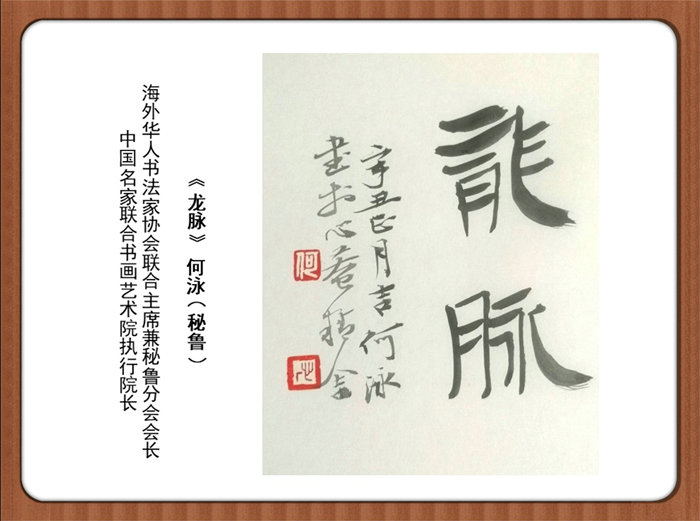 龍脉
辛丑正月吉何泳
書於心菴精舍
何
《龙脉》 何泳（秘鲁）
海外华人书法家协会联合主席兼秘鲁分会会长
中国名家联合书画艺术院执行院长